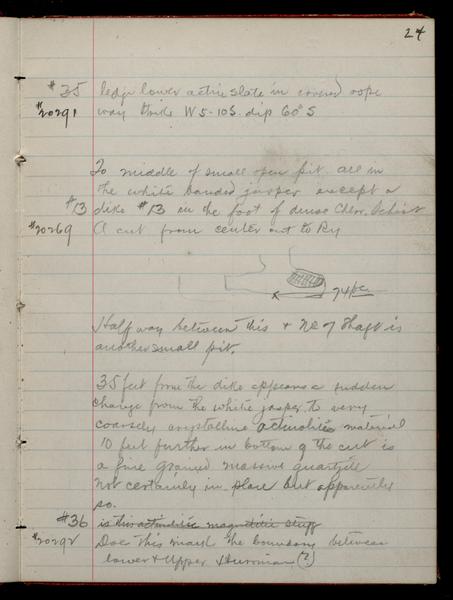 24
#35 ledge lower actin slate in covered rope
#20291 way strike W 5-10S. dip 60° S
To middle of small open pit. all in
the white banded jasper except a
#13 dike #13 in the foot of dense Chlor. Schist
#20269 A cut from center out to Ry
74 pc.
Half way between this + No 7 Shaft is
another small pit.
35 feet from the dike appears a sudden
change from the white jasper to very
coarsely crystalline actinolitic material
10 feet further in bottom of the cut is
a fine grained massive quartzite
not certainly in place but apparently
so.
#36 is this actinolitic magnetitic stuff
#20292 Does this mark the boundary between
lower + Upper Huronian (?)